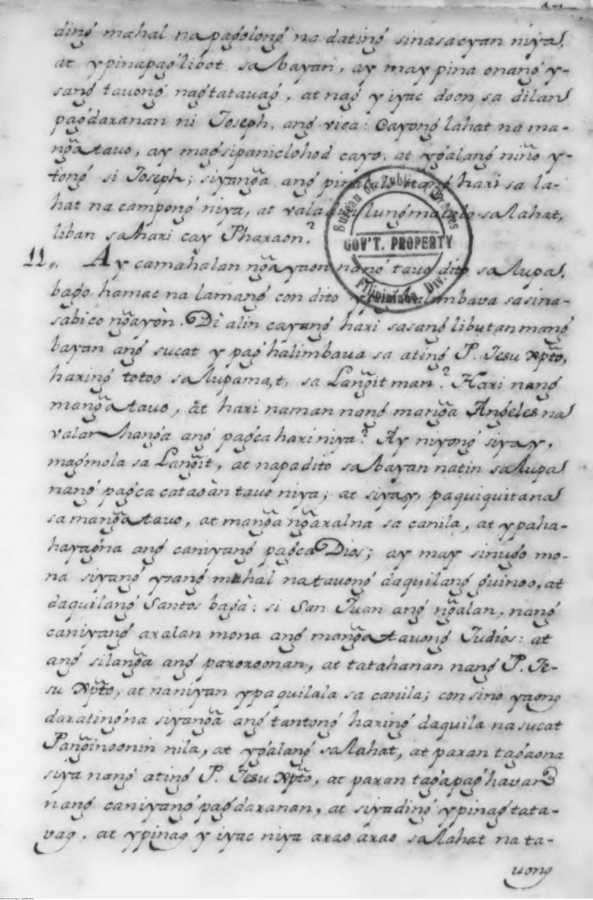 ding mahal na pag̃olong̃ na dating̃ sinasacyan niya,
at ypinapag̃libot sa bayan, ay may pina onang̃ y-
sang̃ tauong̃ nag̃tatauag̃, at nag̃ y iyac doon sa dilan
pag̃daranan ni Joseph, ang̃ vica: Cayong̃ lahat na ma-
ng̃a tauo, ay mag̃sipaniclohod cayo, at yg̃alang̃ ninỹo y-
tong̃ si Joseph; siyang̃a ang̃ hari sa la-
hat na campong̃ niya, at sa lahat,
liban sa hari cay Pharaon.
11. Ay camahalan ng̃a yaon nang̃ tauo dito sa lupa,
bag̃o hamac na lamang̃ con dito sa sina-
sabi co ng̃ayòn. Di alin cayang̃ hari sa sang̃libutan mang̃
bayan ang̃ sucat y pag̃halimbaua sa ating̃ P. Jesu Xp̃to,
haring̃ totoo sa lupa ma,t, sa Lang̃it man? Hari nang̃
mang̃a tauo, at hari naman nang̃ mang̃a Ang̃eles na
valan hang̃a ang̃ pag̃ca hari niya? Ay niyong̃ siya,y,
mag̃mola sa Lang̃it, at napa dito sa bayan natin sa lupa
nang̃ pag̃ca cataoàn tauo niya; at siya,y, paquiquitana
sa mang̃a tauo, at mang̃a ng̃aral na sa canila, at ypaha-
hayag̃ na ang̃ caniyang̃ pag̃ca Dios; ay may sinug̃o mo-
na siyang̃ ysang̃ mahal na tauong̃ daquilang̃ guinoo, at
daquilang̃ Santos bag̃à: si San Juan ang̃ ng̃alan, nang̃
caniyang̃ aralan mona ang̃ mang̃a tauong̃ Judios: at
ang̃ silang̃a ang̃ paroroonan, at tatahanan nang̃ P. Je-
su Xp̃to, at naniyan ypaquilala sa canila; con sino yaong̃
darating̃ na siyang̃a ang̃ tantong̃ haring̃ daquila na sucat
Pang̃inoonin nila, at yg̃alang̃ sa lahat, at paran tag̃aona
siya nang̃ ating̃ P. Jesu Xp̃to, at paran tag̃apag̃havan
nang̃ caniyang̃ pag̃daranan, at siya ding̃ ypinag̃tata-
vag̃, at ypinag̃ y iyac niya arao arao sa lahat na ta-
uong
GOV'T. PROPERTY